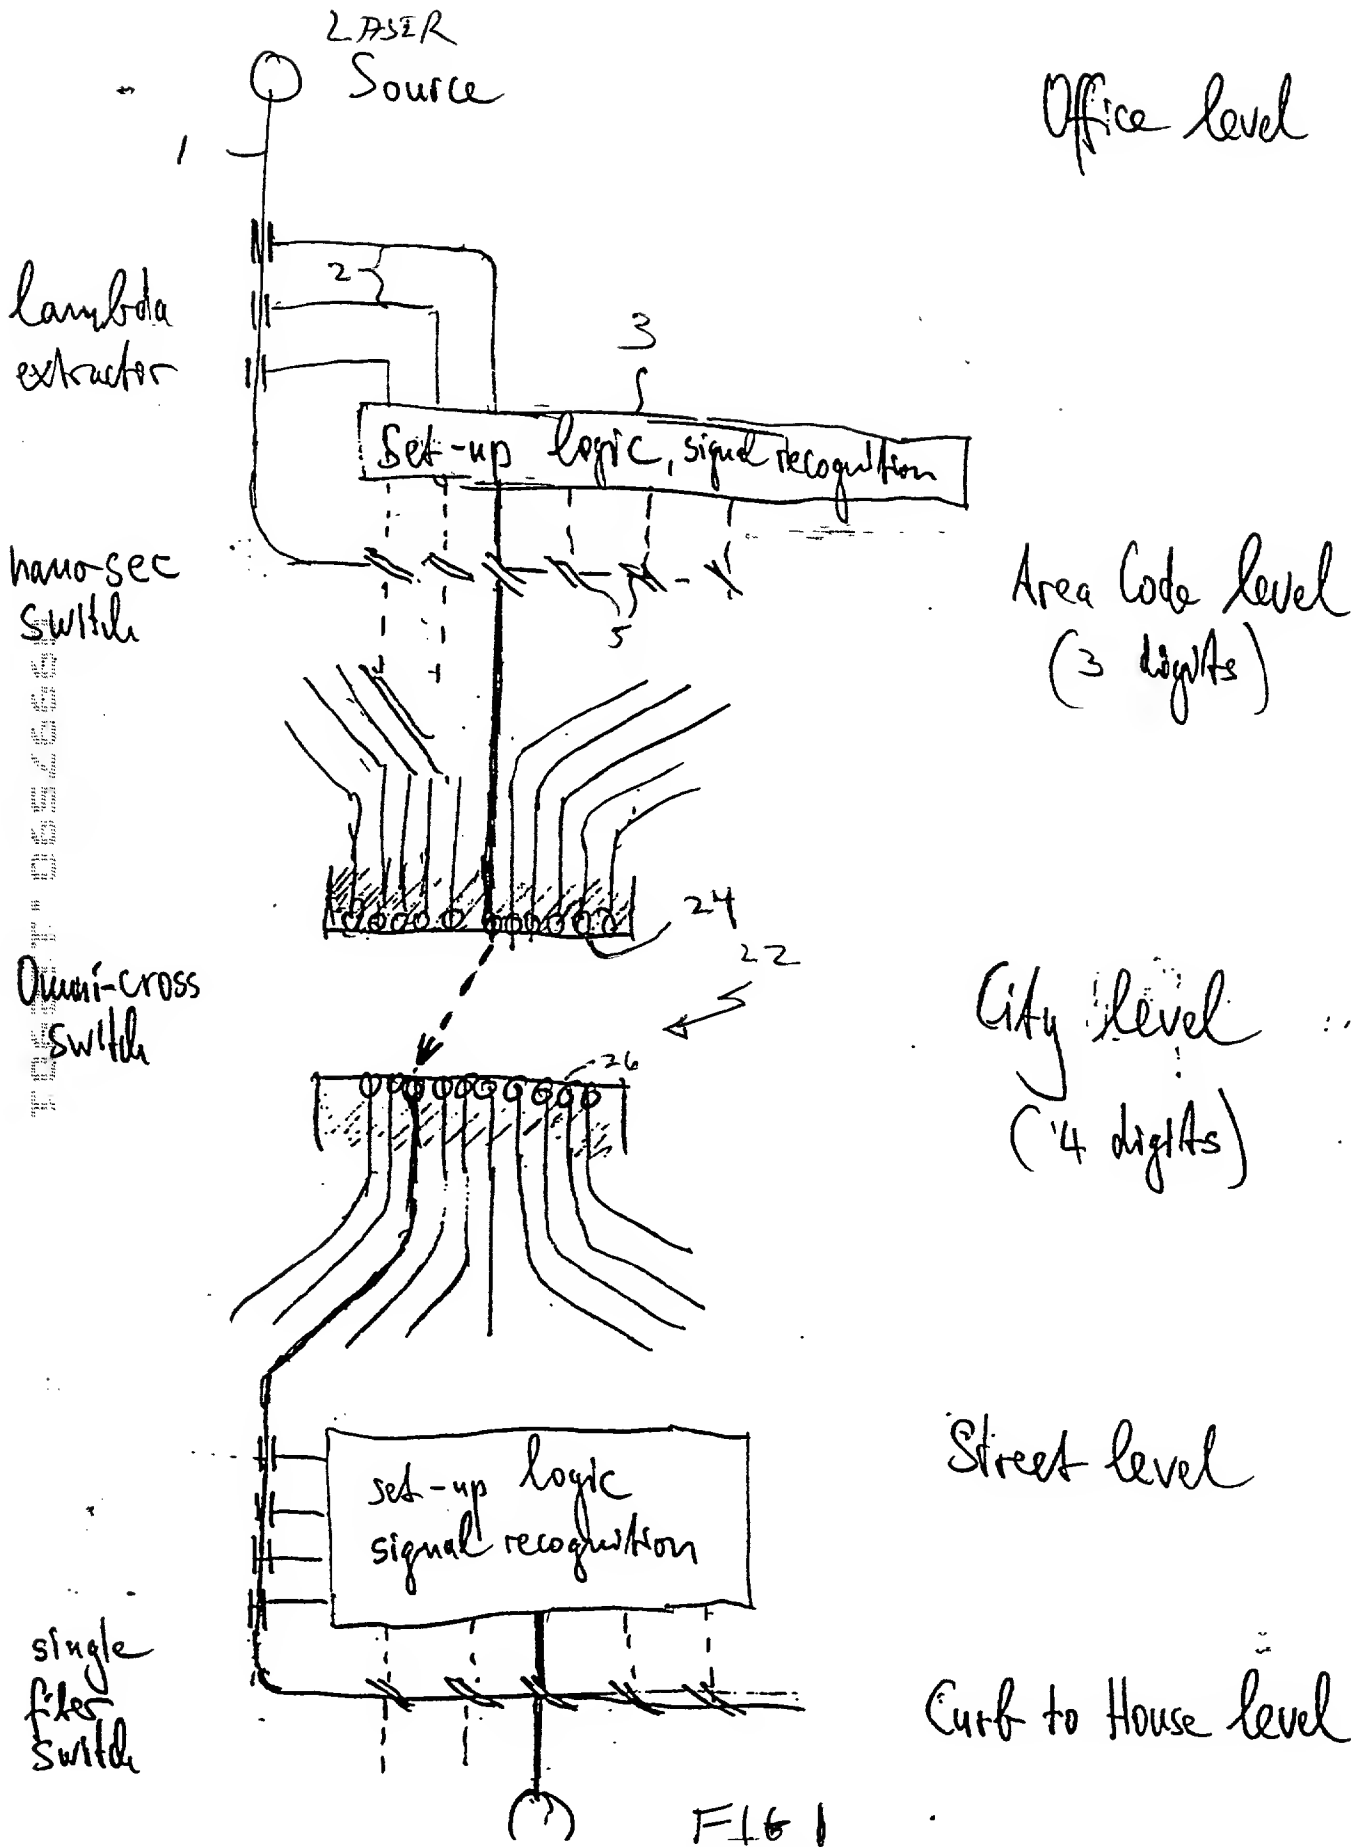 LASER
Source
Office level
1
2
lambda
extractor
3
Set-up logic, signal recognition
nano-sec
switch
5
Area Code level
(3 digits)
24
22
Omni-cross
switch
City level
(4 digits)
26
Street level
set-up logic
signal recognition
single
fiber
switch
Curb to House level
FIG 1